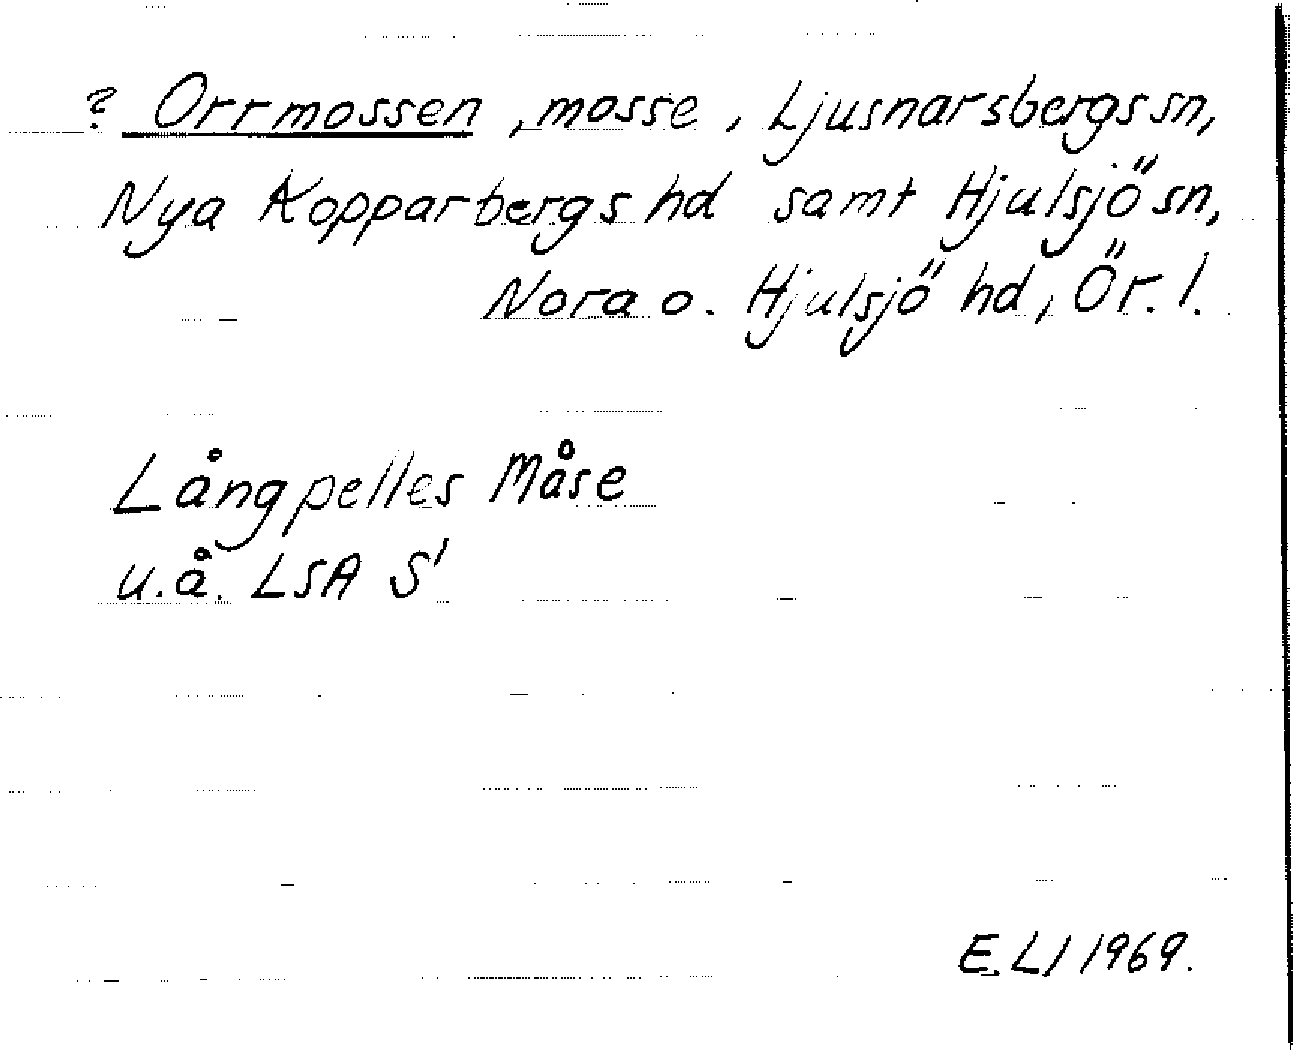 ? Orrmossen, mosse, Ljusnarsbergs sn,
Nya Kopparbergs hd samt Hjulsjö sn,
Nora o. Hjulsjö hd, Ör. l.
Långpelles Måse
u.å. LSA S'
E.LI 1969.